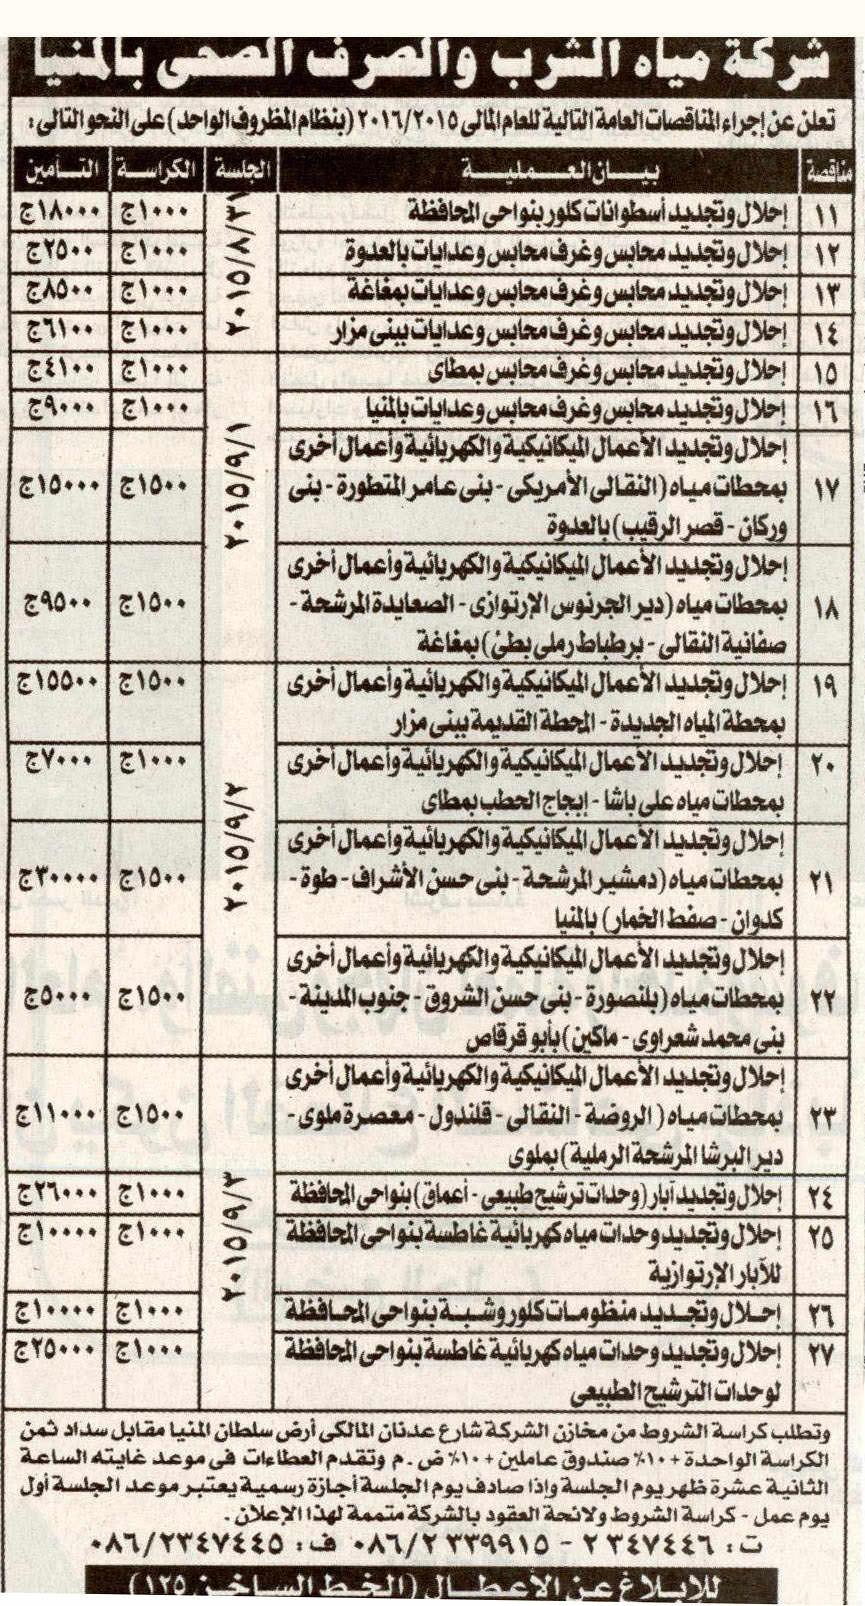 شركة مياه الشرب والصرف الصحى بالمنيا
تعلن عن إجراء المناقصات العامة التالية للعام المالى ٢٠١٦/٢٠١٥ (بنظام المظروف الواحد) على النحو التالى:
مناقصة بيان العملية الجلسة الكراسة التأمين
١١ إحلال وتجديد أسطوانات كلور بنواحى المحافظة ١٠٠٠ج ١٨٠٠٠ج
٢٠١٥/٨/٣١
١٢ إحلال وتجديد محابس وغرف محابس وعدايات بالعدوة ١٠٠٠ج ٢٥٠٠ج
١٣ إحلال وتجديد محابس وغرف محابس وعدايات بمغاغة ١٠٠٠ج ٨٥٠٠ج
١٤ إحلال وتجديد محابس وغرف محابس وعدايات ببنى مزار ١٠٠٠ج ٦١٠٠ج
١٥ إحلال وتجديد محابس وغرف محابس بمطاى ١٠٠٠ج ٤١٠٠ج
٢٠١٥/٩/١
١٦ إحلال وتجديد محابس وغرف محابس وعدايات بالمنيا ١٠٠٠ج ٩٠٠٠ج
إحلال وتجديد الأعمال الميكانيكية والكهربائية وأعمال أخرى
١٧ بمحطات مياه (النقالى الأمريكى - بنى عامر المتطورة - بنى ١٥٠٠ج ١٥٠٠٠ج
وركان - قصر الرقيب) بالعدوة
إحلال وتجديد الأعمال الميكانيكية والكهربائية وأعمال أخرى
١٨ بمحطات مياه (دير الجرنوس الإرتوازى - الصعايدة المرشحة - ١٥٠٠ج ٩٥٠٠ج
صفانية النقالى - برطباط رملى بطئ) بمغاغة
١٩ إحلال وتجديد الأعمال الميكانيكية والكهربائية وأعمال أخرى ١٥٠٠ج ١٥٥٠٠ج
بمحطة المياه الجديدة - المحطة القديمة ببنى مزار
٢٠١٥/٩/٢
٢٠ إحلال وتجديد الأعمال الميكانيكية والكهربائية وأعمال أخرى ١٠٠٠ج ٧٠٠٠ج
بمحطات مياه على باشا - إبجاج الحطب بمطاى
إحلال وتجديد الأعمال الميكانيكية والكهربائية وأعمال أخرى
٢١ بمحطات مياه (دمشير المرشحة - بنى حسن الأشراف - طوة - ١٥٠٠ج ٣٠٠٠٠ج
كدوان - صفط الخمار) بالمنيا
إحلال وتجديد الأعمال الميكانيكية والكهربائية وأعمال أخرى
٢٢ بمحطات مياه (بلنصورة - بنى حسن الشروق - جنوب المدينة - ١٥٠٠ج ٥٠٠٠ج
بنى محمد شعراوى - ماكين) بأبو قرقاص
إحلال وتجديد الأعمال الميكانيكية والكهربائية وأعمال أخرى
٢٣ بمحطات مياه (الروضة - النقالى - قلندول - معصرة ملوى - ١٥٠٠ج ١١٠٠٠ج
دير البرشا المرشحة الرملية) بملوى
٢٤ إحلال وتجديد آبار (وحدات ترشيح طبيعى - أعماق) بنواحى المحافظة ١٠٠٠ج ٢٦٠٠٠ج
٢٠١٥/٩/٣
٢٥ إحلال وتجديد وحدات مياه كهربائية غاطسة بنواحى المحافظة ١٠٠٠ج ١٠٠٠٠ج
للآبار الإرتوازية
٢٦ إحلال وتجديد منظومات كلور وشبة بنواحى المحافظة ١٠٠٠ج ١٠٠٠٠ج
٢٧ إحلال وتجديد وحدات مياه كهربائية غاطسة بنواحى المحافظة ١٠٠٠ج ٢٥٠٠٠ج
لوحدات الترشيح الطبيعى
وتطلب كراسة الشروط من مخازن الشركة شارع عدنان المالكى أرض سلطان المنيا مقابل سداد ثمن
الكراسة الواحدة + ١٠٪ صندوق عاملين + ١٠٪ ض . م وتقدم العطاءات فى موعد غايته الساعة
الثانية عشرة ظهر يوم الجلسة وإذا صادف يوم الجلسة أجازة رسمية يعتبر موعد الجلسة أول
يوم عمل - كراسة الشروط ولائحة العقود بالشركة متممة لهذا الإعلان .
ت: ٢٣٤٧٤٤٦ - ٠٨٦/٢٣٣٩٩١٥ ف: ٠٨٦/٢٣٤٧٤٤٥
للإبلاغ عن الأعطال (الخط الساخن ١٢٥)